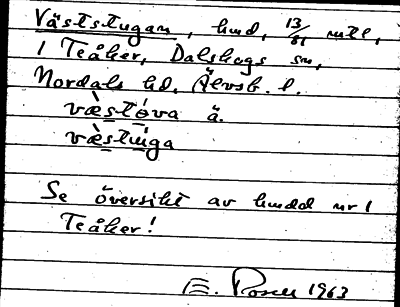 Väststugan, hmd, 13/81 mtl,
1 Teåker, Dalskogs sn,
Nordals hd, Älvsb. l.
væ̀stóva ä.
væ̀stuga
Se översikt av hmdd nr 1
Teåker!
E. Rosell 1963